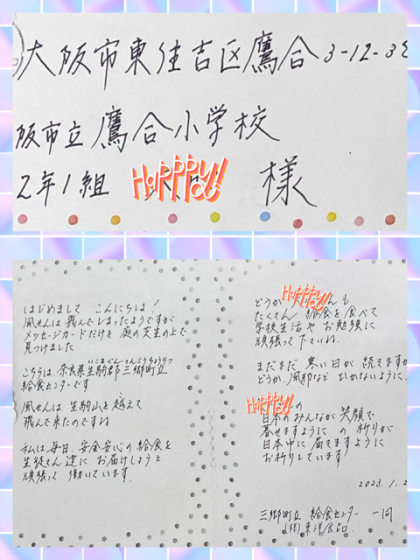 大阪市東住吉区鷹合3-12-3
阪市立鷹合小学校
2年1組 HaPPPy! 様
はじめまして こんにちは!
風せんは 飛んでしまったようですが
メッセージカードだけを 庭の芝生の上で
見つけました
こちらは 奈良県生駒郡三郷町立
いこまぐんさんごうちょうりつ
給食センターです
風せんは 生駒山を越えて
飛んで来たのですね
私は毎日、安全安心の 給食を
生徒さん達に お届けしようと
頑張って 働いています
どうか HaPPPy! んも
たくさん 給食を食べて
学校生活や お勉強に
頑張って下さいね
まだまだ 寒い日が 続きますが
どうか、風邪など ひかないように、
HaPPPy! の
日本のみんなが 笑顔で
暮せますように の 祈りが
日本中に 届きますように
お祈りしています
2023.1.2
三郷町立 給食センター 一同
(株)東洋食品